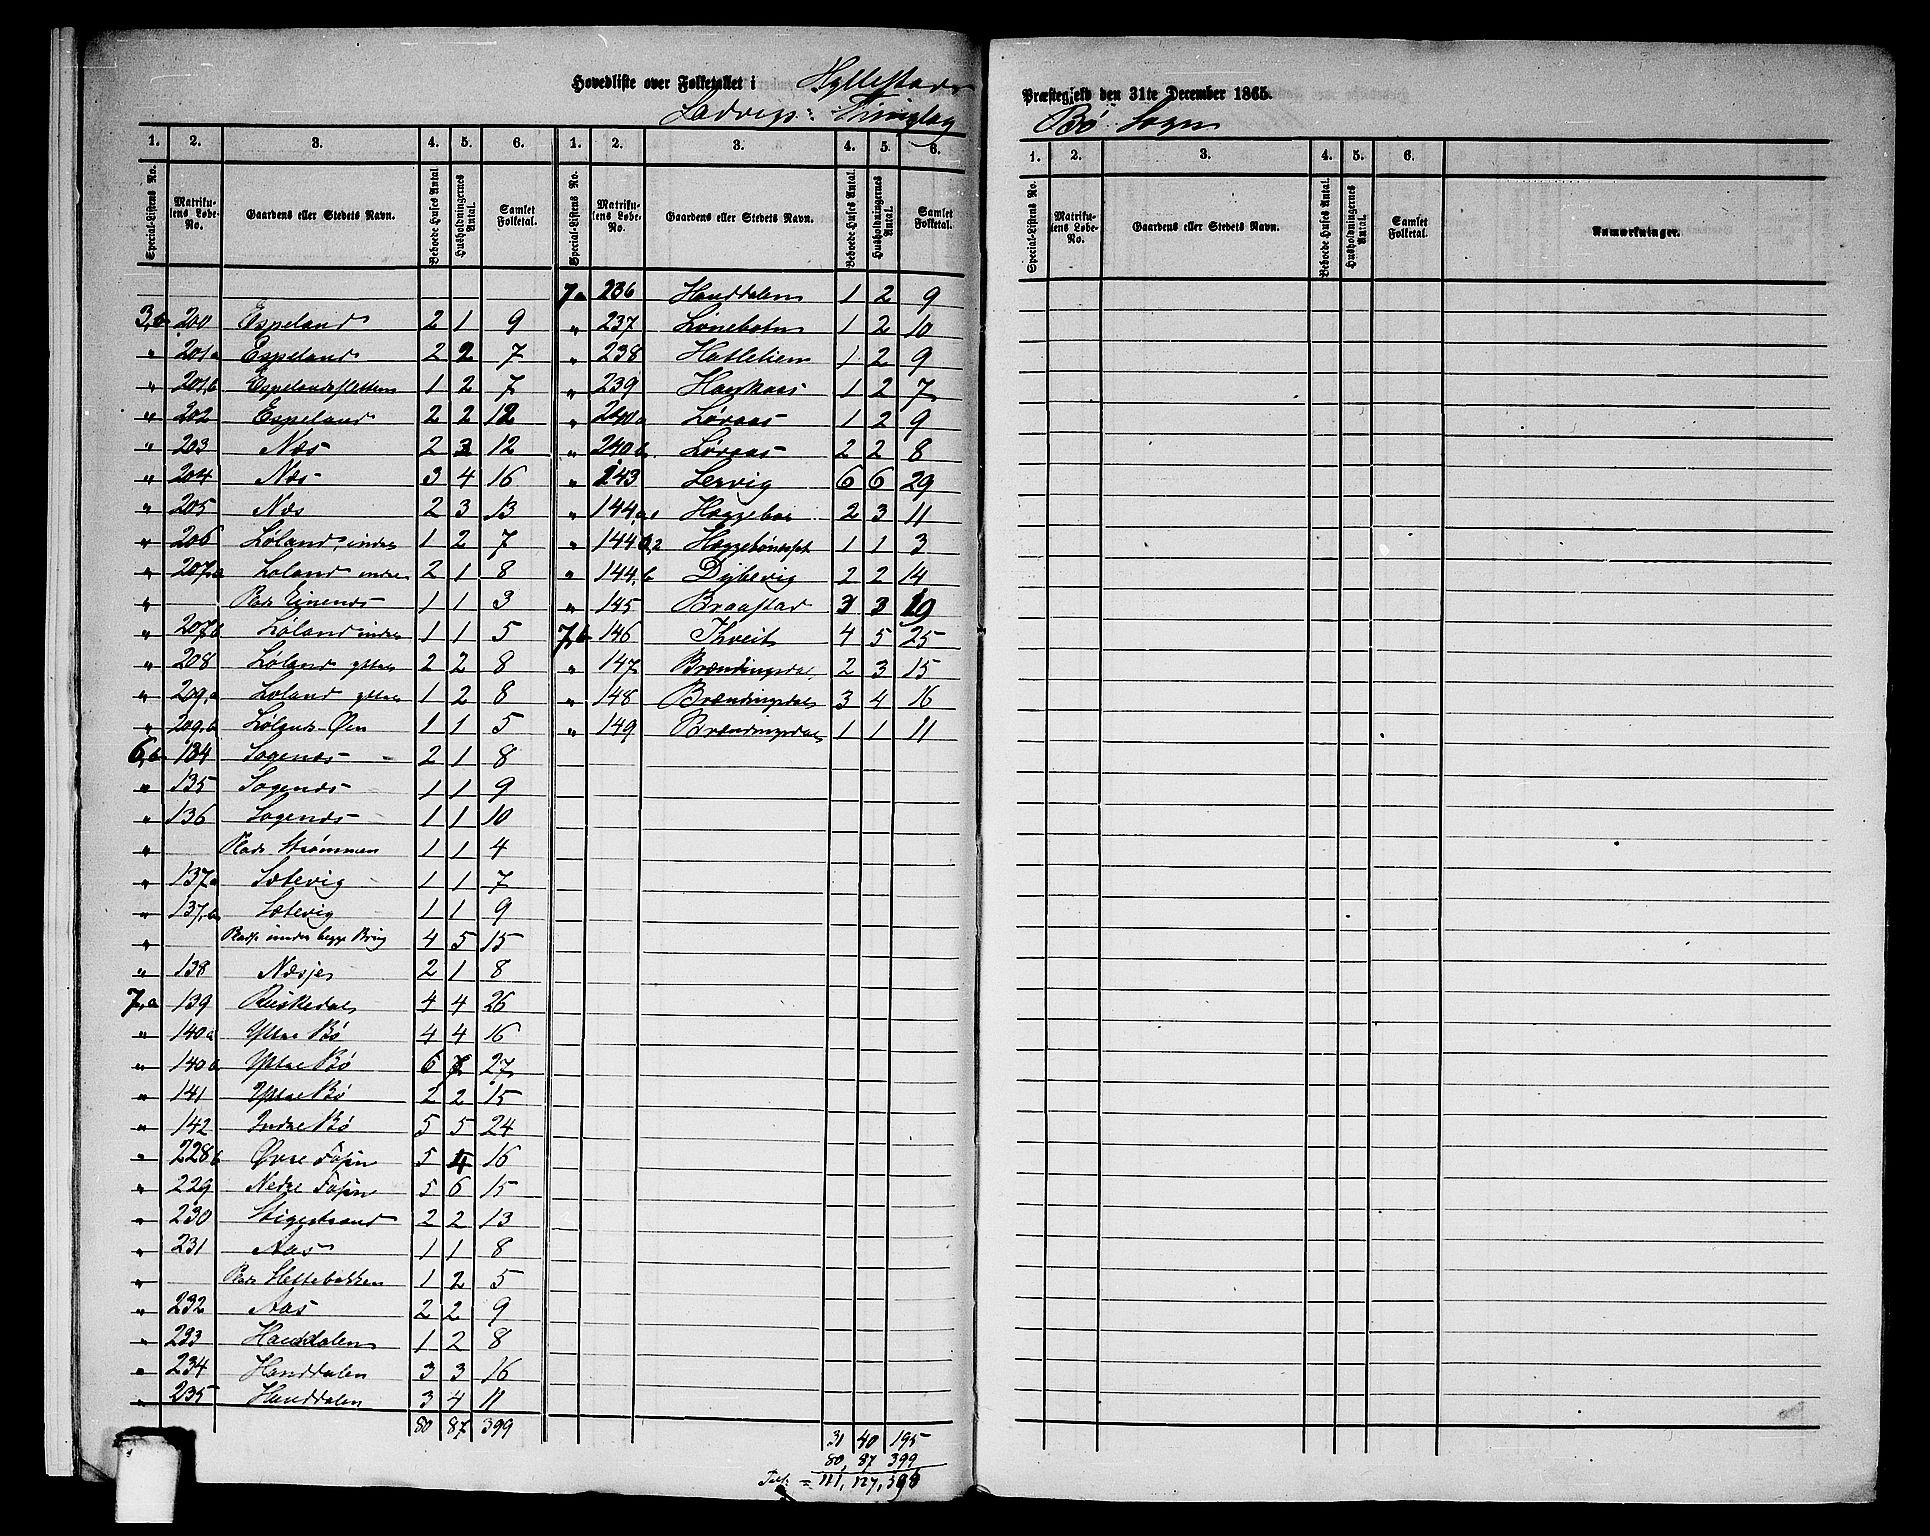 Hovedliste over Folketallet i Hyllestads Præstegjeld den 31te December 1865.
Ladvigs Thinglag Bø Sogn
1. 2. 3. 4. 5. 6. 1. 2. 3. 4. 5. 6.
Special-Listens No. Matrikulens Løbe-No. Gaardens eller Stedets Navn. Beboede Huses Antal. Husholdningernes Antal. Samlet Folketal. Special-Listens No. Matrikulens Løbe-No. Gaardens eller Stedets Navn. Beboede Huses Antal. Husholdningernes Antal. Samlet Folketal.
3,b 200 Espeland 2 1 9
" 201a Espeland 2 2 7
" 201,b Espelandsletten 1 2 7
" 202 Espeland 2 2 12
" 203 Næs 2 3 12
" 204 Næs 3 4 16
" 205 Næs 2 3 13
" 206 Løland, indre 1 2 7
" 207,a Løland indre 2 1 8
" Plads Einenes 1 1 3
" 207,b Løland indre 1 1 5
" 208 Løland ytre 2 2 8
" 209,a Løland ytre 1 2 8
" 209,b Lølands-Øen 1 1 5
6,b 134 Sogenæs 2 1 8
" 135 Sogenæs 1 1 9
" 136 Sogenæs 1 1 10
" Plads Strømmen 1 1 4
" 137a Sætevig 1 1 7
" 137,b Sætevig 1 1 9
" Plads under begge Brug 4 5 15
" 138 Næsje 2 1 8
7,a 139 Riskedal 4 4 26
" 140a Yttre Bø 4 4 16
" 140b Yttre Bø 6 7 27
" 141 Yttre Bø 2 2 15
" 142 Indre Bø 5 5 24
" 228b Øvre Fossen 5 4 16
" 229 Nedre Fossen 5 6 15
" 230 Stigestrand 2 2 13
" 231 Aas 1 1 8
" Plads Hettebakken 1 2 5
" 232 Aas 2 2 9
" 233 Handdalen 1 2 8
" 234 Handdalen 3 3 16
" 235 Handdalen 3 4 11
80 87 399
7a 236 Handdalen 1 2 9
" 237 Lønebotn 1 2 10
" 238 Hatlelien 1 2 9
" 239 Haugkaas 1 2 7
" 240a Løraas 1 2 9
" 240b Løraas 2 2 8
" 143 Lervig 6 6 29
" 144,a1 Høggebøe 2 3 11
" 144a,2 1 1 3
" 144,b Dybevig 2 2 14
" 145 Braastad 3 3 19
7,b 146 Thveit 4 5 25
" 147 Brændingsdal 2 3 15
" 148 Brændingsdal 3 4 16
" 149 Brændingsdal 1 1 11
31 40 195
80, 87 399
= 111, 127,
1. 2. 3. 4. 5. 6. 7.
Special-Listens No. Matrikulens Løbe-No. Gaardens eller Stedets Navn. Beboede Huses Antal. Husholdningernes Antal. Samlet Folketal. Anmærkninger.